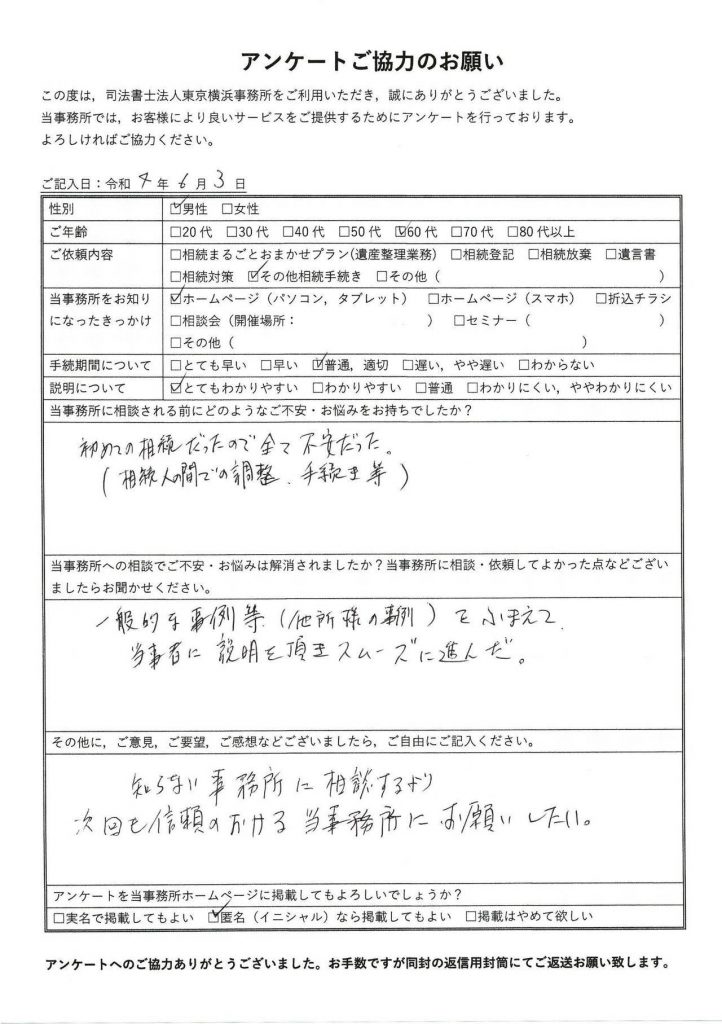 アンケートご協力のお願い
この度は，司法書士法人東京横浜事務所をご利用いただき，誠にありがとうございました。
当事務所では，お客様により良いサービスをご提供するためにアンケートを行っております。
よろしければご協力ください。
ご記入日：令和 4 年 6 月 3 日
性別 ☑男性 □女性
ご年齢 □20代 □30代 □40代 □50代 ☑60代 □70代 □80代以上
ご依頼内容 □相続まるごとおまかせプラン(遺産整理業務) □相続登記 □相続放棄 □遺言書
□相続対策 ☑その他相続手続き □その他（ ）
当事務所をお知り ☑ホームページ（パソコン，タブレット） □ホームページ（スマホ） □折込チラシ
になったきっかけ □相談会（開催場所： ） □セミナー（ ）
□その他（ ）
手続期間について □とても早い □早い ☑普通，適切 □遅い，やや遅い □わからない
説明について ☑とてもわかりやすい □わかりやすい □普通 □わかりにくい，ややわかりにくい
当事務所に相談される前にどのようなご不安・お悩みをお持ちでしたか？
初めての相続だったので全て不安だった。
（相続人の間での調整、手続き等）
当事務所への相談でご不安・お悩みは解消されましたか？当事務所に相談・依頼してよかった点などござい
ましたらお聞かせください。
一般的な事例等（他所様の事例）をふまえて、
当事者に説明を頂きスムーズに進んだ。
その他に，ご意見，ご要望，ご感想などございましたら，ご自由にご記入ください。
知らない事務所に相談するより
次回も信頼のおける当事務所にお願いしたい。
アンケートを当事務所ホームページに掲載してもよろしいでしょうか？
□実名で掲載してもよい ☑匿名（イニシャル）なら掲載してもよい □掲載はやめて欲しい
アンケートへのご協力ありがとうございました。お手数ですが同封の返信用封筒にてご返送お願い致します。